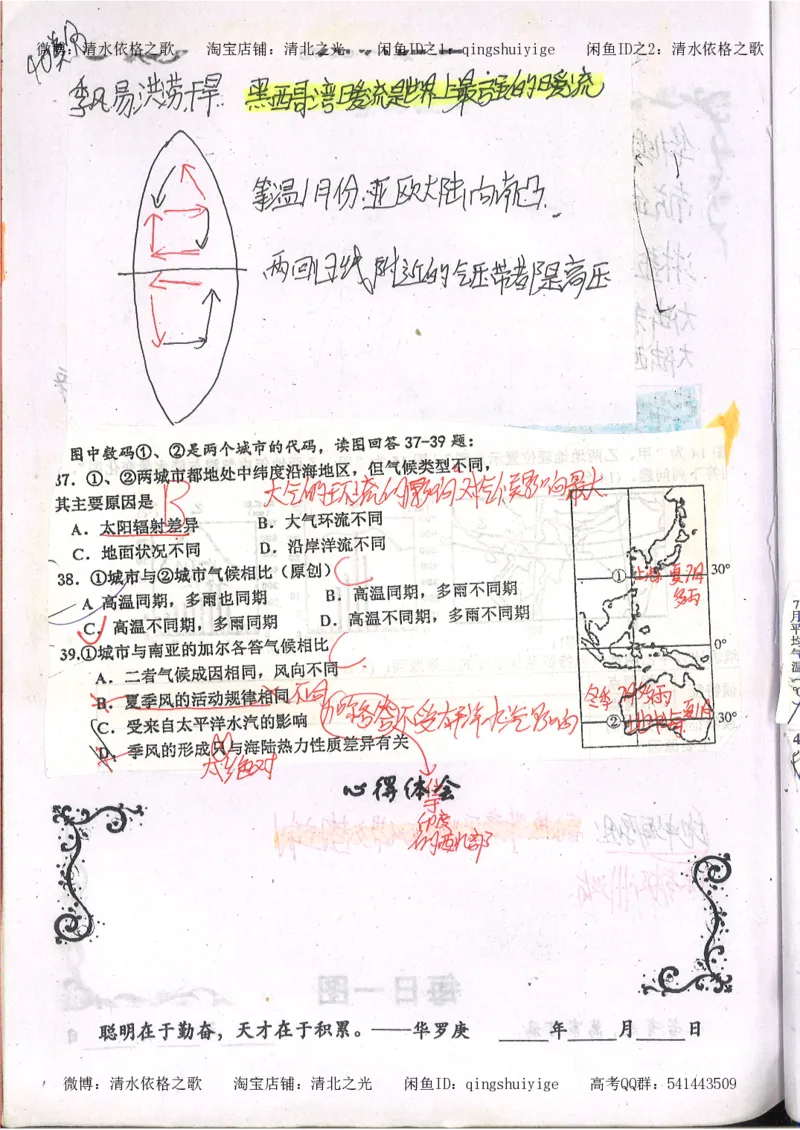 微博：清水依格之歌 淘宝店铺：清北之光 闲鱼ID之1：qingshuiyige 闲鱼ID之2：清水依格之歌
季风易洪涝干旱 墨西哥湾暖流是世界上最高强的暖流
等温1月份.亚欧大陆向南凸.
两回归线附近的气压带都是高压
图中数码①、②是两个城市的代码，读图回答 37-39 题：
37．①、②两城市都地处中纬度沿海地区，但气候类型不同，
其主要原因是 B 大气的环流的影响对气候影响最大
A．太阳辐射差异 B．大气环流不同
C．地面状况不同 D．沿岸洋流不同
38．①城市与②城市气候相比（原创） C
A 高温同期，多雨也同期 B．高温同期，多雨不同期
C．高温不同期，多雨同期 D．高温不同期，多雨不同期
39.①城市与南亚的加尔各答气候相比 C
A．二者气候成因相同，风向不同
B．夏季风的活动规律相同 不同
C．受来自太平洋水汽的影响 加尔各答不受太平洋水汽影响
D．季风的形成只与海陆热力性质差异有关
太绝对
① 上海 夏7月
多雨
30°
0°
冬季 7月多雨
②
30°
心得体会
位于
印度
的西北部
聪明在于勤奋，天才在于积累。——华罗庚 _____年_____月_____日
微博：清水依格之歌 淘宝店铺：清北之光 闲鱼ID：qingshuiyige 高考QQ群：541443509
7
月
平
均
气
温